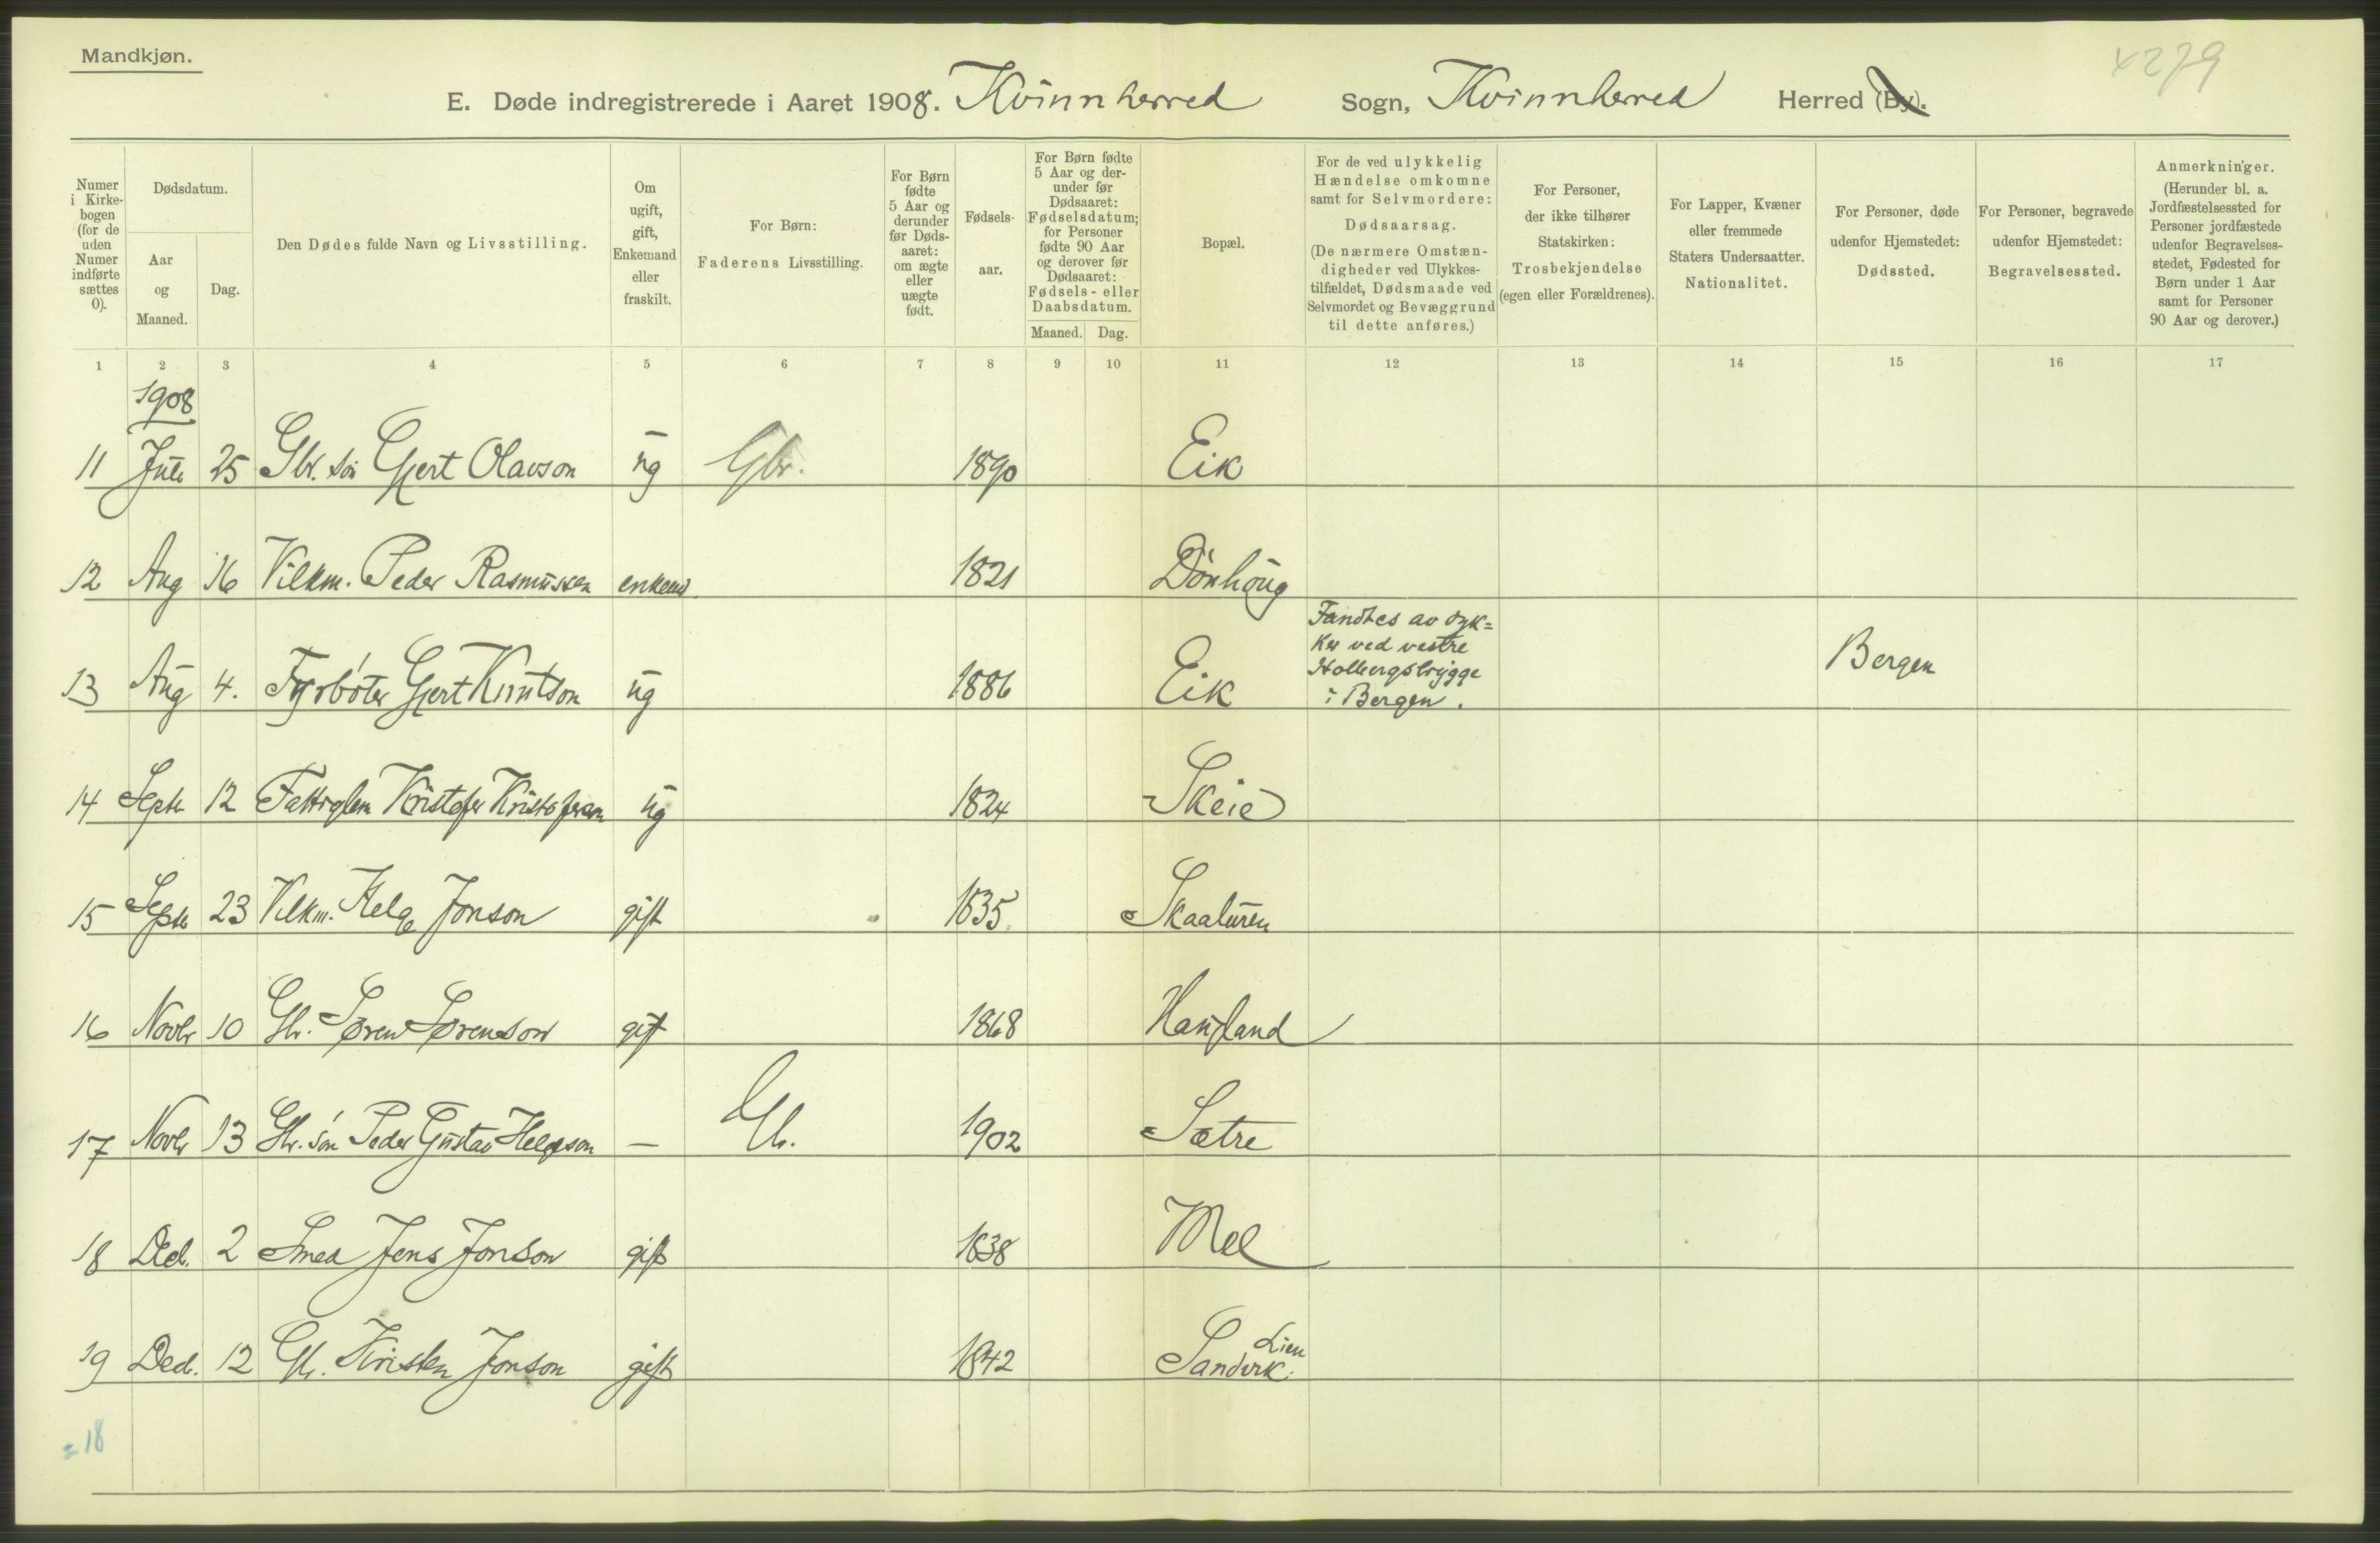 Mandkjøn.
×279
E. Døde indregistrerede i Aaret 1908. Kvinnherred Sogn, Kvinnherred Herred (By).
Numer i Kirkebogen (for de uden Numer indførte sættes 0).
Dødsdatum.
Aar og Maaned.
Dag.
Den Dødes fulde Navn og Livsstilling.
Om ugift, gift, Enkemand eller fraskilt.
For Børn: Faderens Livsstilling.
For Børn fødte 5 Aar og derunder før Dødsaaret: om ægte eller uægte født.
Fødselsaar.
For Børn fødte 5 Aar og derunder før Dødsaaret: Fødselsdatum; for Personer fødte 90 Aar og derover før Dødsaaret: Fødsels- eller Daabsdatum.
Maaned. Dag.
Bopæl.
For de ved ulykkelig Hændelse omkomne samt for Selvmordere: Dødsaarsag. (De nærmere Omstændigheder ved Ulykkestilfældet, Dødsmaade ved Selvmordet og Bevæggrund til dette anføres.)
For Personer, der ikke tilhører Statskirken: Trosbekjendelse (egen eller Forældrenes).
For Lapper, Kvæner eller fremmede Staters Undersaatter. Nationalitet.
For Personer, døde udenfor Hjemstedet: Dødssted.
For Personer, begravede udenfor Hjemstedet: Begravelsessted.
Anmerkninger. (Herunder bl. a. Jordfæstelsessted for Personer jordfæstede udenfor Begravelsesstedet, Fødested for Børn under 1 Aar samt for Personer 90 Aar og derover.)
1 2 3 4 5 6 7 8 9 10 11 12 13 14 15 16 17
1908
11 Juli 25 Gbr. søn Gjert Olavson ug Gbr. 1890 Eik
12 Aug 16 Vilkm. Peder Rasmussen enkem 1821 Dönhaug
Fandtes av dyk=
ker ved vestre
Holbergsbrygge
i Bergen.
13 Aug 4. Fyrbøter Gjert Knutson ug 1886 Eik Bergen
14 Septr 12 Fattiglem Kristofer Kristoferson ug 1824 Skeie
15 Septr 23 Vilkm. Helge Jonson gift 1835 Skaaluren
16 Novbr 10 Gbr. Søren Sørenson gift 1868 Haugland
17 Novbr 13 Gbr. søn Peder Gustav Helgeson — Gb. 1902 Sætre
18 Dec. 2 Smed Jens Jonson gift 1838 Mel
19 Dec. 12 Gb. Kristen Jonson gift 1842 Lien Sandvik.
= 18